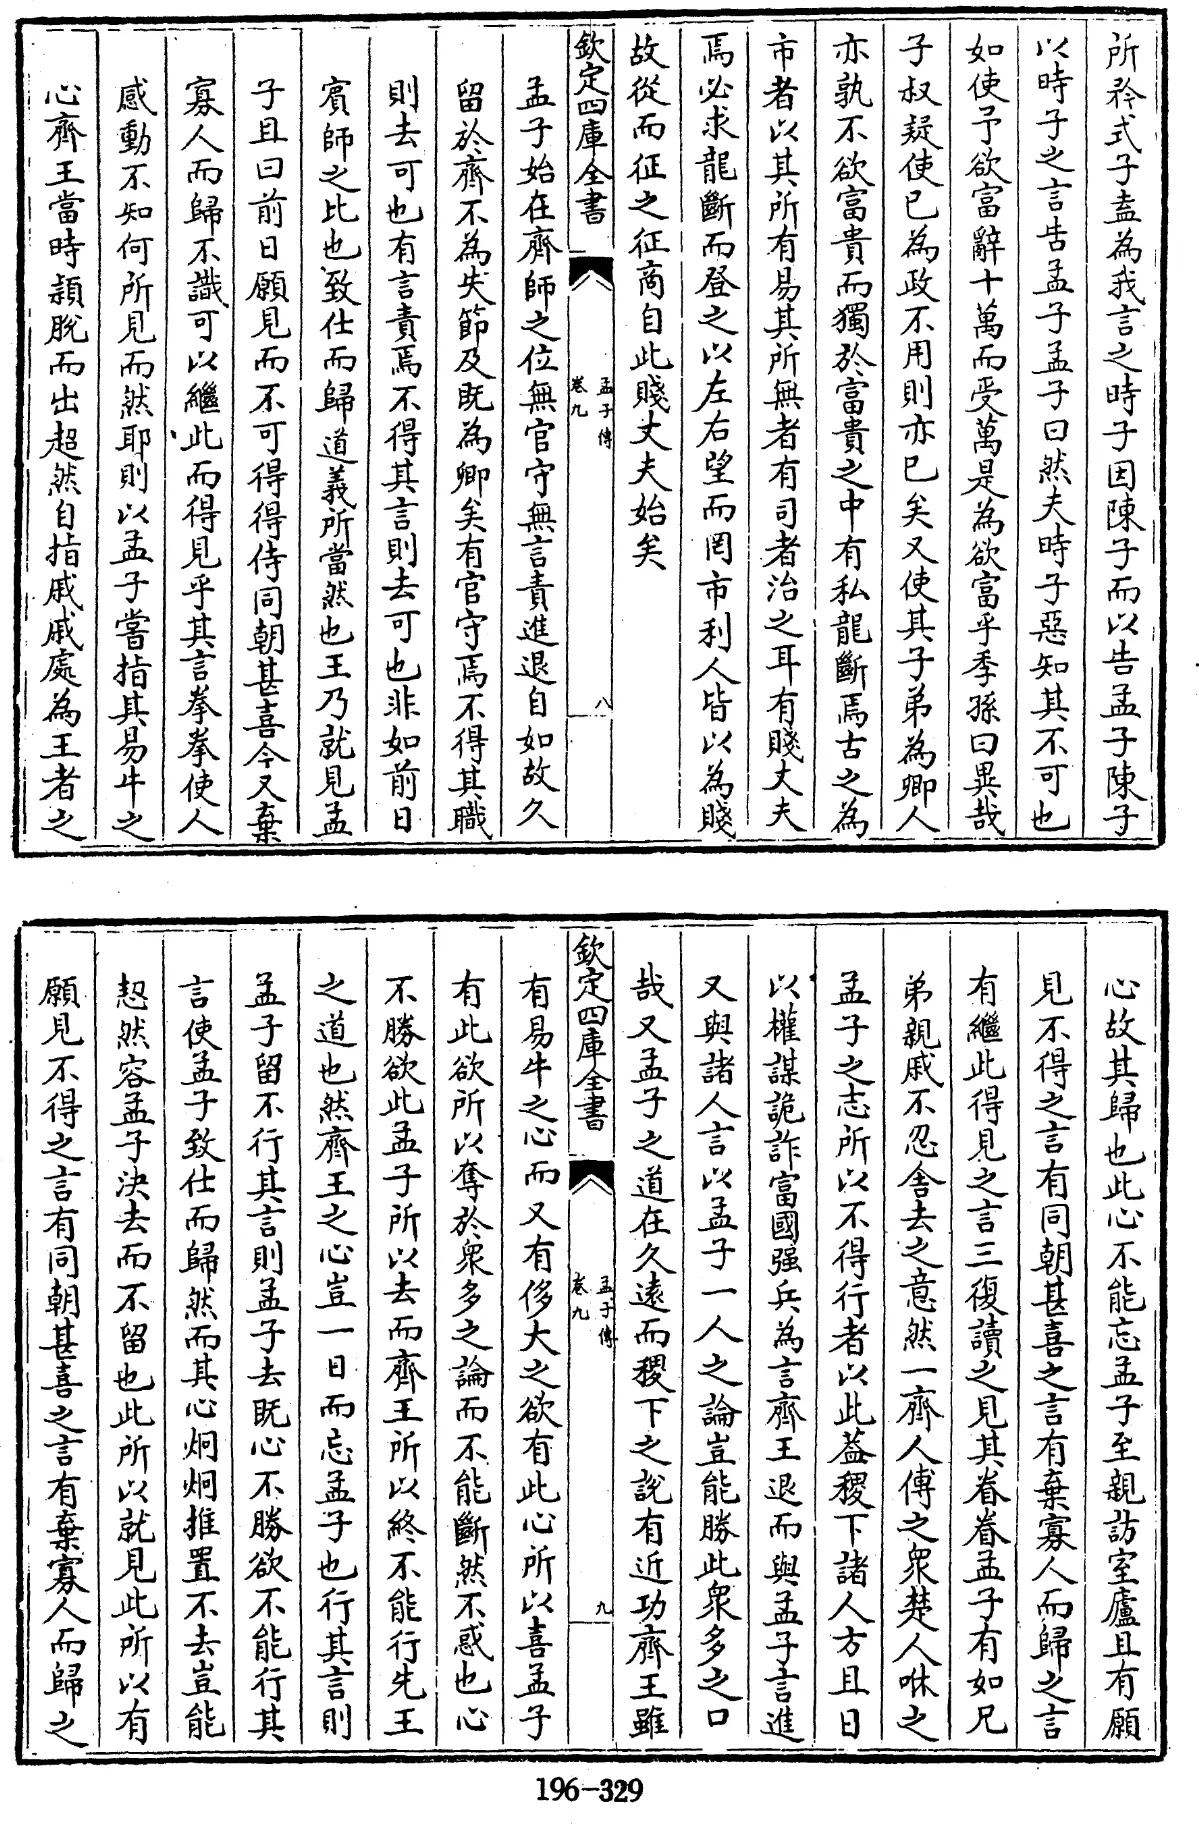 所矜式子盍為我言之時子因陳子而以告孟子陳子
以時子之言告孟子孟子曰然夫時子惡知其不可也
如使予欲富辭十萬而受萬是為欲富乎季孫曰異哉
子叔疑使已為政不用則亦已矣又使其子弟為卿人
亦孰不欲富貴而獨於富貴之中有私龍斷焉古之為
市者以其所有易其所無者有司者治之耳有賤丈夫
焉必求龍斷而登之以左右望而罔市利人皆以為賤
故從而征之征商自此賤丈夫始矣
欽定四庫全書
孟子傳
卷九
八
孟子始在齊師之位無官守無言責進退自如故久
留於齊不為失節及既為卿矣有官守焉不得其職
則去可也有言責焉不得其言則去可也非如前日
賓師之比也致仕而歸道義所當然也王乃就見孟
子且曰前日願見而不可得得侍同朝甚喜今又棄
寡人而歸不識可以繼此而得見乎其言拳拳使人
感動不知何所見而然耶則以孟子嘗指其易牛之
心齊王當時頴脫而出超然自指戚戚處為王者之
心故其歸也此心不能忘孟子至親訪室廬且有願
見不得之言有同朝甚喜之言有棄寡人而歸之言
有繼此得見之言三復讀之見其眷眷孟子有如兄
弟親戚不忍舍去之意然一齊人傅之衆楚人咻之
孟子之志所以不得行者以此葢稷下諸人方且日
以權謀詭詐富國强兵為言齊王退而與孟子言進
又與諸人言以孟子一人之論豈能勝此衆多之口
哉又孟子之道在久遠而稷下之說有近功齊王雖
欽定四庫全書
孟子傳
卷九
九
有易牛之心而又有侈大之欲有此心所以喜孟子
有此欲所以奪於衆多之論而不能斷然不惑也心
不勝欲此孟子所以去而齊王所以終不能行先王
之道也然齊王之心豈一日而忘孟子也行其言則
孟子留不行其言則孟子去既心不勝欲不能行其
言使孟子致仕而歸然而其心炯炯推置不去豈能
恝然容孟子決去而不留也此所以就見此所以有
願見不得之言有同朝甚喜之言有棄寡人而歸之
196-329